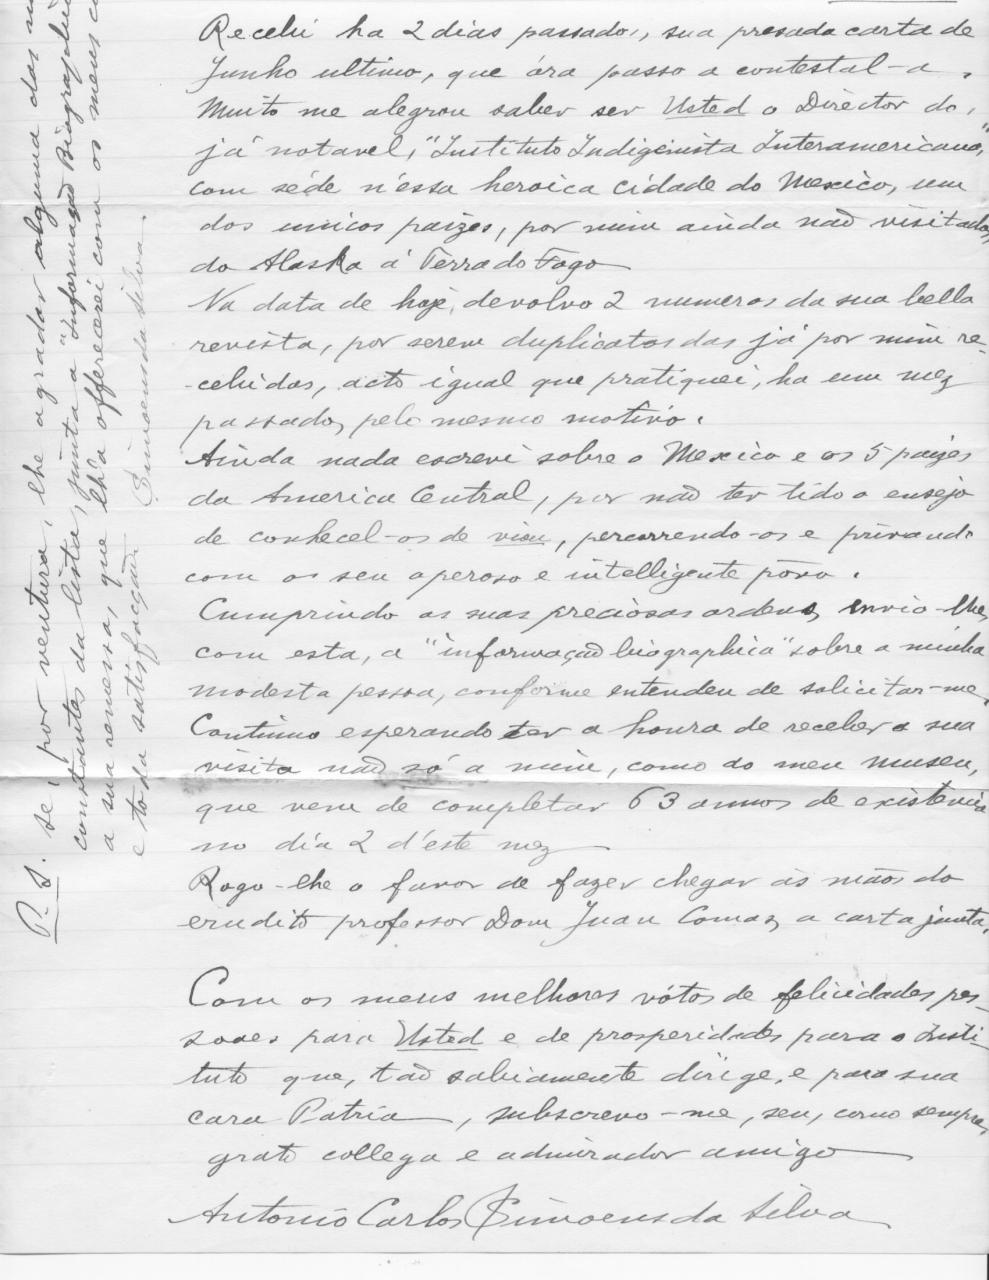 Recebi ha 2 dias passados, sua presada carta de
Junho ultimo, que óra passo a contestal-a.
Muito me alegrou saber ser Usted o Director do,
já notavel, "Instituto Indigenista Interamericano,"
com séde n'éssa heroica cidade do Mexico, um
dos unicos paizes, por mim ainda não visitados,
do Alaska á Terra do Fogo
Na data de hoje, devolvo 2 numeros da sua bella
revista, por serem duplicatas das já por mim re-
-cebidas, acto igual que pratiquei, ha um mez
passado, pelo mesmo motivo.
Ainda nada escrevi sobre o Mexico e os 5 paizes
da America Central, por não ter tido o ensejo
de conhecel-os de visu, percorrendo-os e privando
com os seu operoso e intelligente pôvo.
Cumprindo as suas preciosas ordens, envio-lhe,
com esta, a "informação biographica" sobre a minha
modesta pessoa, conforme entendeu de solicitar-me.
Continuo esperando ter a honra de receber a sua
visita não só a mim, como ao meu museu,
que vem de completar 63 annos de existencia
no dia 2 d'éste mez
Rogo-lhe o favor de fazer chegar ás mãos do
erudito professor Dom Juan Comas, a carta junta.
Com os meus melhores vótos de felicidades pes-
soaes para Usted e de prosperidades para o Insti-
tuto que, tão sabiamente dirige, e para sua
cara Patria, subscrevo-me, seu, como sempre,
grato collega e admirador amigo
Antonio Carlos Simoens da Silva
P.S. Se, por ventura, lhe agradar alguma das
constantes da lista, junta a "Informação Biographica
a sua remessa, que lh'a offerecerei com os meus
e toda satisfacção. Simoens da Silva